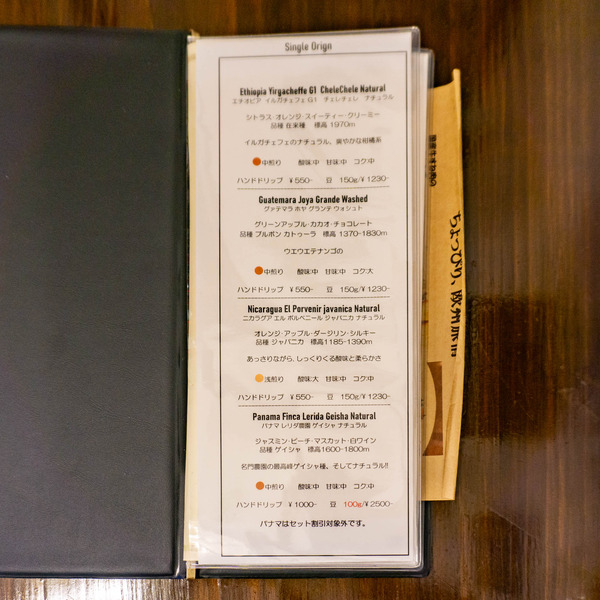 Single Orign
Ethiopia Yirgacheffe G1 CheleChele Natural
エチオピア イルガチェフェ G1 チェレチェレ ナチュラル
シトラス・オレンジ・スイーティー・クリーミー
品種 在来種 標高 1970m
イルガチェフェのナチュラル、爽やかな柑橘系
中煎り 酸味:中 甘味:中 コク:中
ハンドドリップ ¥550- 豆 150g/¥1230-
Guatemara Joya Grande Washed
グァテマラ ホヤ グランテ ウォシュト
グリーンアップル・カカオ・チョコレート
品種 ブルボン カトゥーラ 標高 1370-1830m
ウエウエテナンゴの
中煎り 酸味:中 甘味:中 コク:大
ハンドドリップ ¥550- 豆 150g/¥1230-
Nicaragua El Porvenir javanica Natural
ニカラグア エル ポルベニール ジャバニカ ナチュラル
オレンジ・アップル・ダージリン・シルキー
品種 ジャバニカ 標高1185-1390m
あっさりながら、しっくりくる酸味と柔らかさ
浅煎り 酸味:大 甘味:中 コク:中
ハンドドリップ ¥550- 豆 150g/¥1230-
Panama Finca Lerida Geisha Natural
パナマ レリダ農園 ゲイシャ ナチュラル
ジャスミン・ピーチ・マスカット・白ワイン
品種 ゲイシャ 標高1600-1800m
名門農園の最高峰ゲイシャ種、そしてナチュラル!!
中煎り 酸味:中 甘味:中 コク:中
ハンドドリップ ¥1000- 豆 100g/¥2500-
パナマはセット割引対象外です。
ちょっぴり、欧州旅